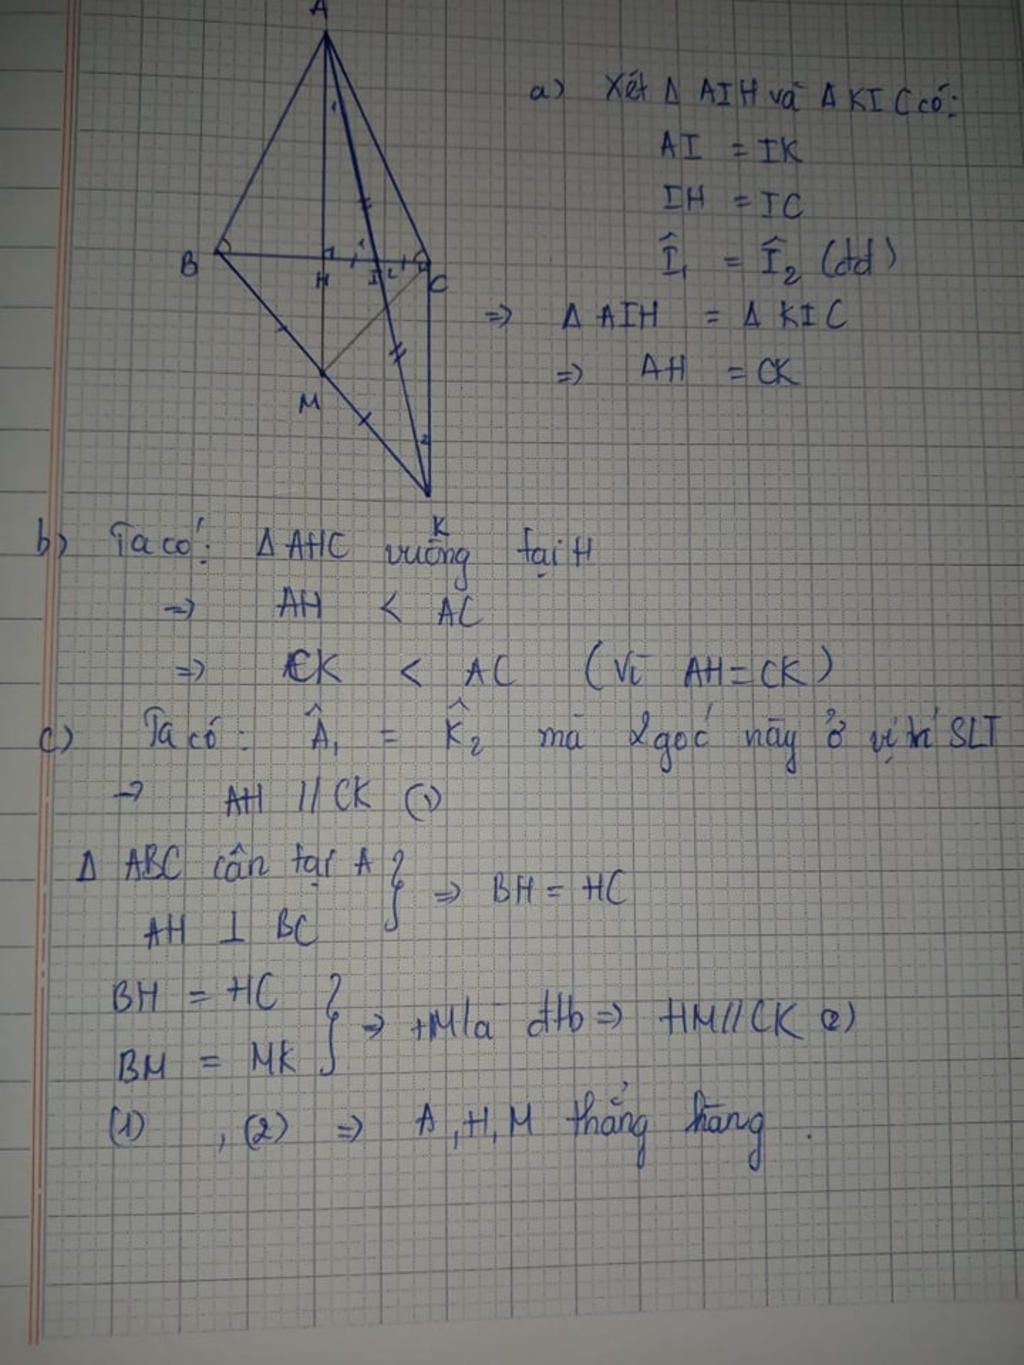 A
a) Xét Δ AIH và Δ KIC có:
AI = IK
IH = IC
Î₁ = Î₂ (đd)
⇒ Δ AIH = Δ KIC
⇒ AH = CK
1
B
H
1
I
2
C
M
2
K
b) Ta có: Δ AHC vuông tại H
⇒ AH < AC
⇒ CK < AC (Vì AH = CK)
c) Ta có: Â₁ = K̂₂ mà 2 góc này ở vị trí SLT
→ AH // CK (1)
Δ ABC cân tại A
AH ⊥ BC } ⇒ BH = HC
BH = HC
BM = MK } ⇒ HM là đtb ⇒ HM // CK (2)
(1) , (2) ⇒ A, H, M thẳng hàng .